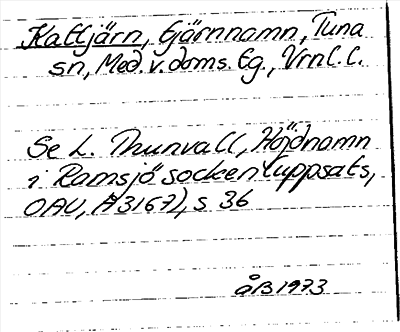 Kattjärn, tjärnnamn, Tuna
sn, Med. v. doms. tg., Vrnl. l.
Se L. Thunvall, Höjdnamn
i Ramsjö socken (uppsats,
OAU, A3167), s 36
åB 1973